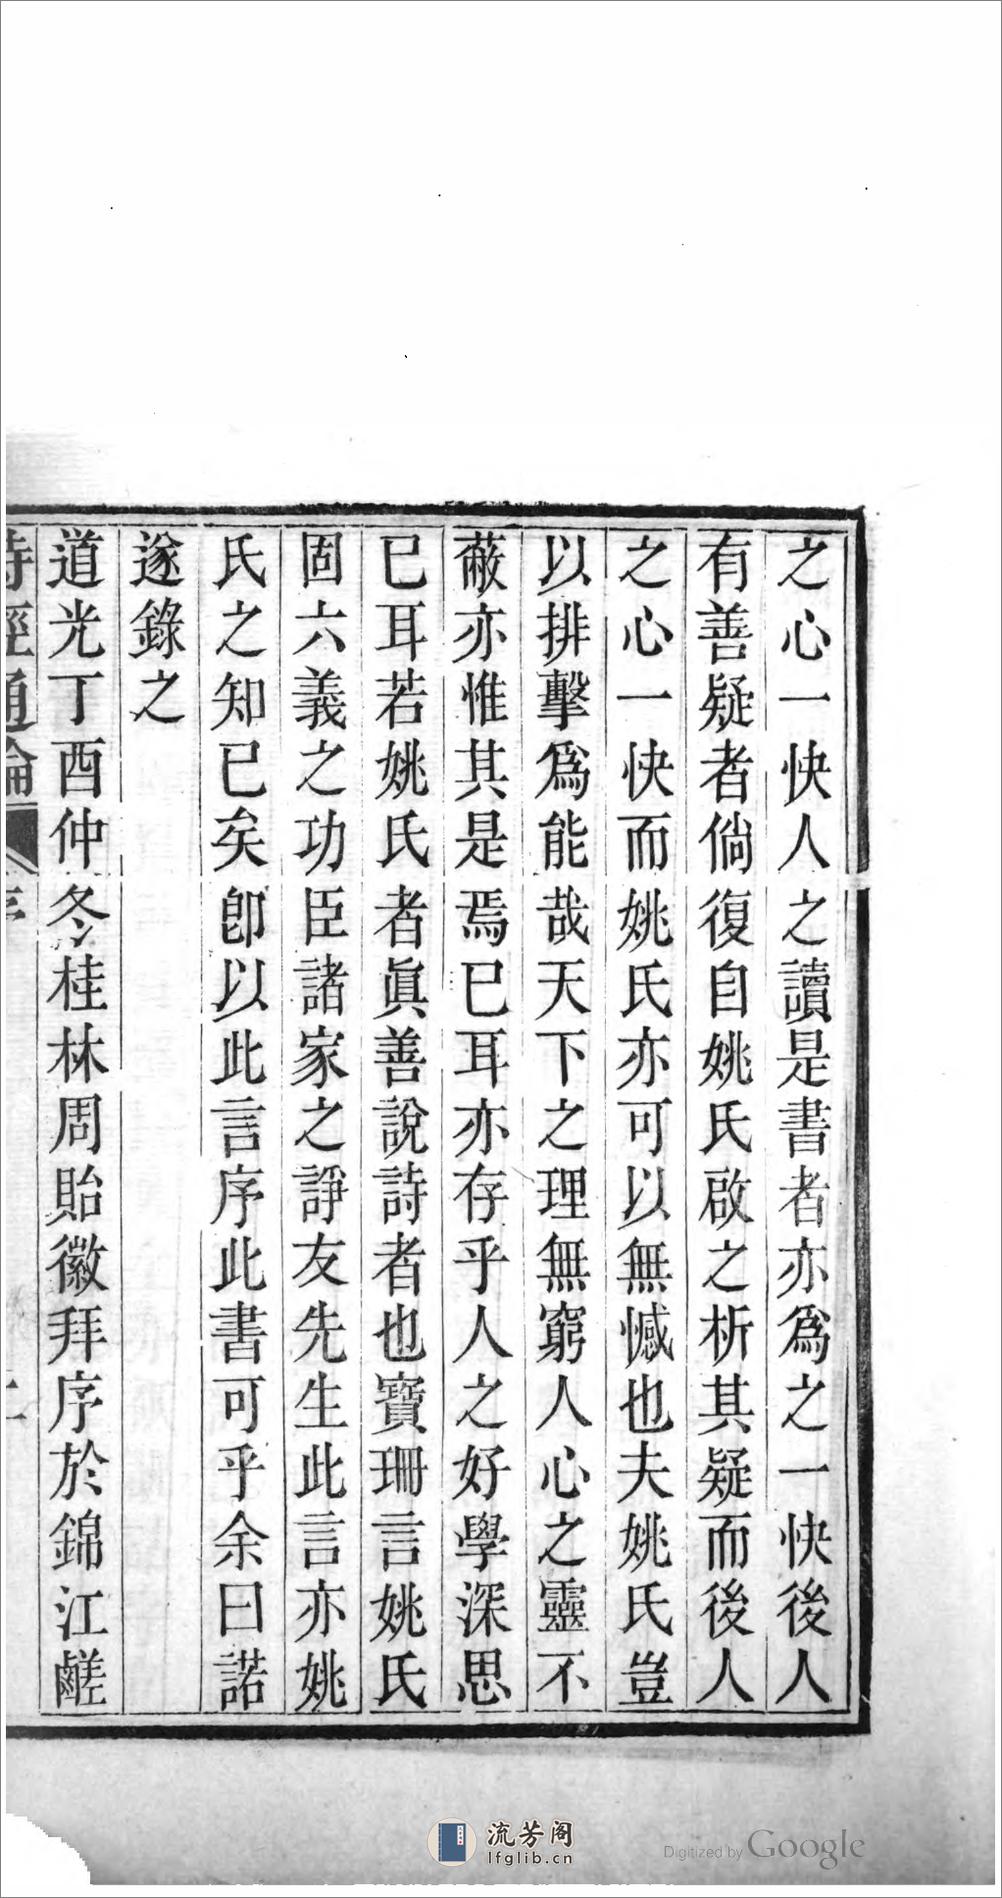 之心一快人之讀是書者亦爲之一快後人
有善疑者倘復自姚氏啟之析其疑而後人
之心一快而姚氏亦可以無憾也夫姚氏豈
以排擊爲能哉天下之理無窮人心之靈不
蔽亦惟其是焉已耳亦存乎人之好學深思
已耳若姚氏者眞善說詩者也寶珊言姚氏
固六義之功臣諸家之諍友先生此言亦姚
氏之知已矣卽以此言序此書可乎余曰諾
遂錄之
道光丁酉仲冬桂林周貽徽拜序於錦江鹺
詩經通論 序
流芳阁
lfglib.cn
Digitized by Google